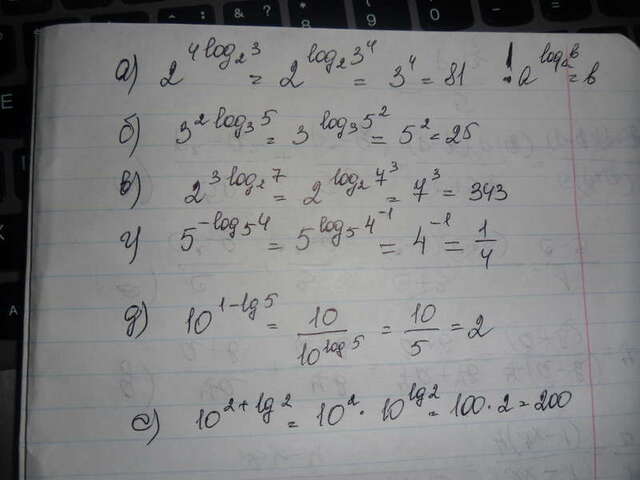 а) 2^{4 log_2 3} = 2^{log_2 3^4} = 3^4 = 81 ! a^{log_a b} = b
б) 3^{2 log_3 5} = 3^{log_3 5^2} = 5^2 = 25
в) 2^{3 log_2 7} = 2^{log_2 7^3} = 7^3 = 343
г) 5^{-log_5 4} = 5^{log_5 4^{-1}} = 4^{-1} = \frac{1}{4}
д) 10^{1-lg 5} = \frac{10}{10^{log 5}} = \frac{10}{5} = 2
е) 10^{2+lg 2} = 10^2 · 10^{lg 2} = 100 · 2 = 200